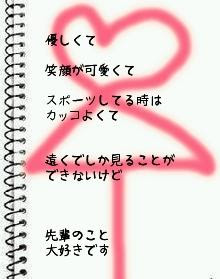 優しくて
笑顔が可愛くて
スポーツしてる時は
カッコよくて
遠くでしか見ることが
できないけど
先輩のこと
大好きです